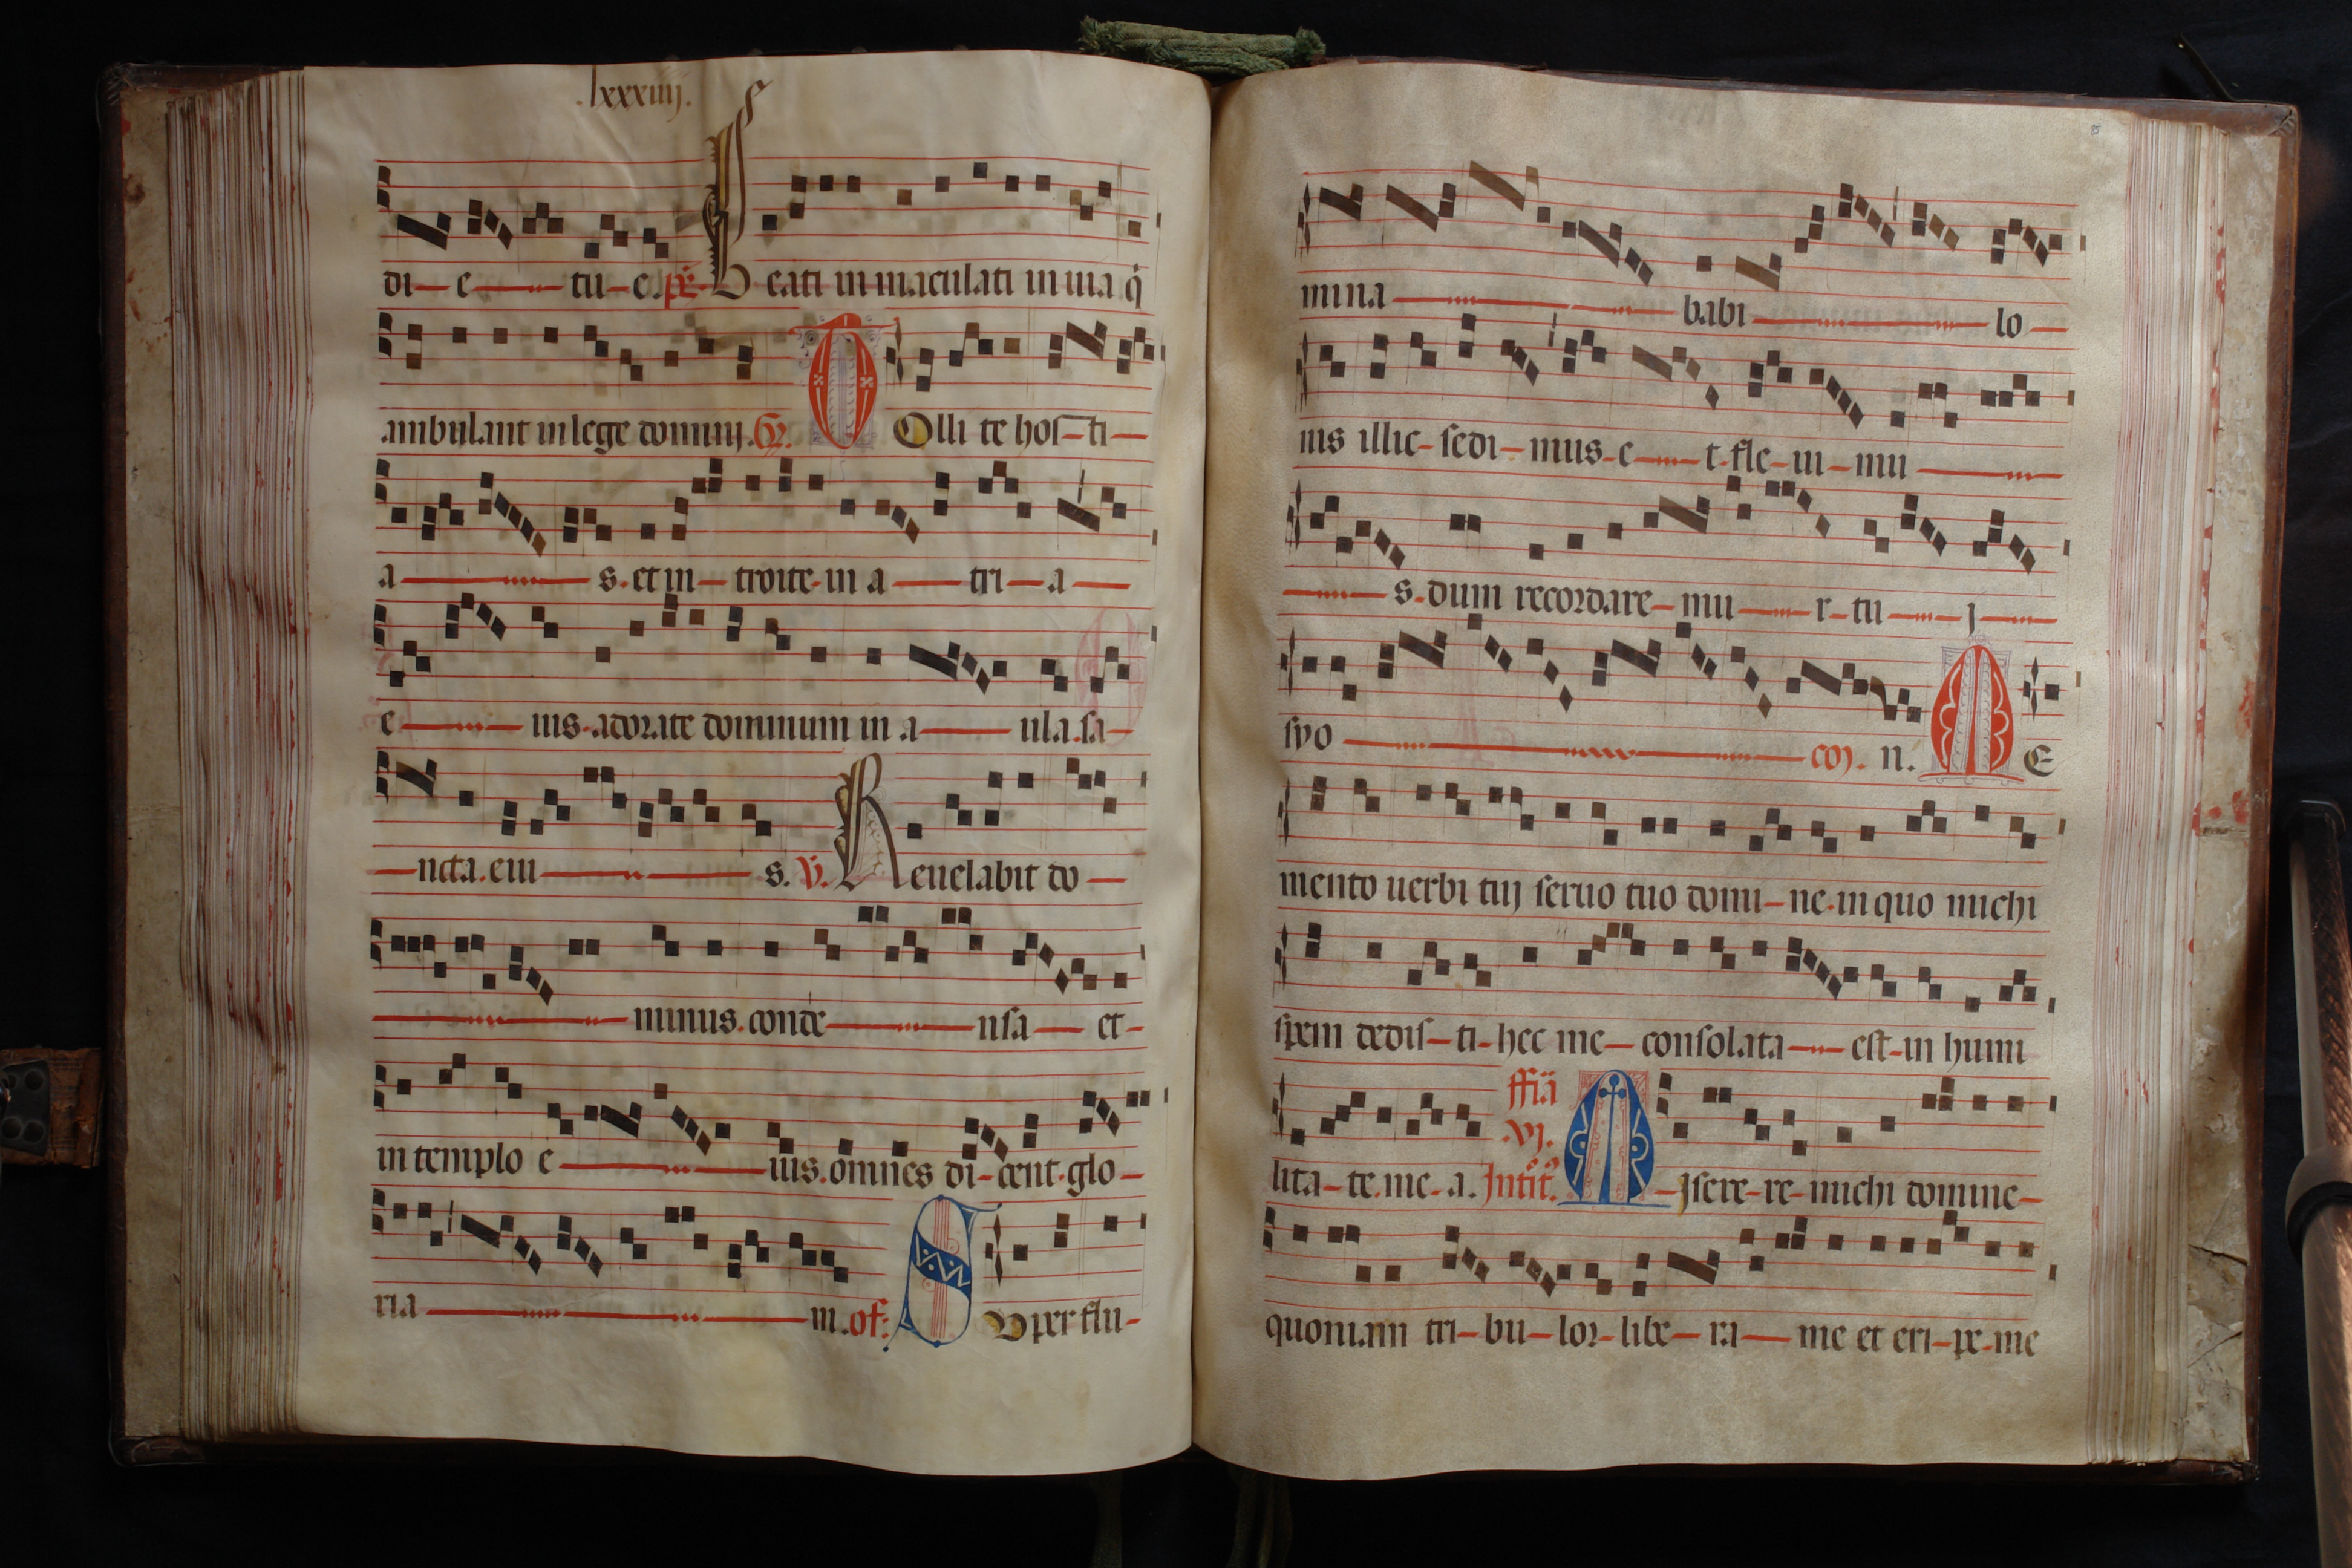 .lxxxiiij.
di-e-tu-e. ps. Beati immaculati in uia q̄
ambulant in lege dominj. Gr. T Ollite hosti-
a-s. et in-troite in a-tri-a-
e-ius. adorate dominum in a-ula. sa-
-ncta. eiu-s. V. Reuelabit do-
-minus. conde-nsa-et-
in templo e-ius. omnes di-cent. glo-
ria-m. of. S Uper flu-
85
mina-babi-lo-
nis illic-sedi-mus-e-t. fle-ui-mu-
-s. dum recordare-mu-r-tu-j-
syo-com. n. M E
mento uerbi tuj seruo tuo domi-ne. in quo michi
spem dedis-ti-hec me-consolata-est-in humi
lita-te. me-a. ffīa .vj. Introitꝰ. M -jsere-re-michi domine-
quoniam tri-bu-lor-libe-ra-me et eri-pe-me